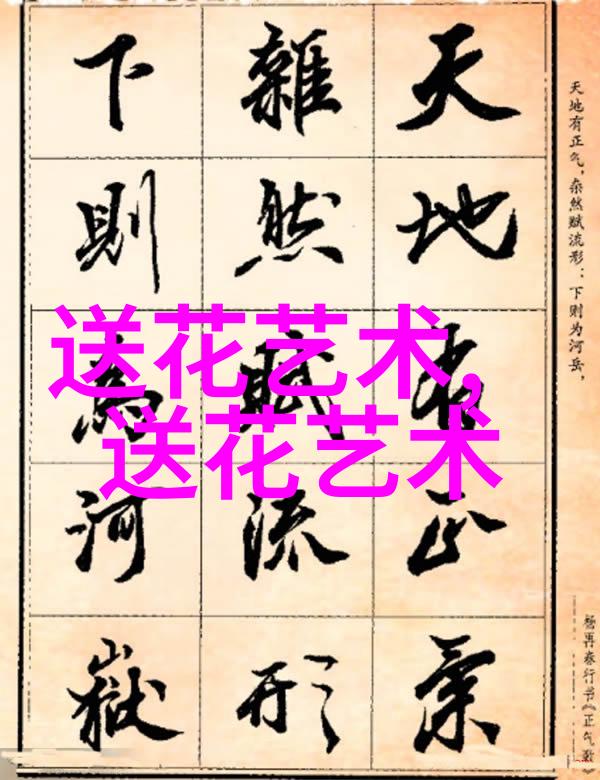 天地有正氣
雜然賦流形
下則為河嶽
天地有正气，杂然赋流形：下则为河岳，
杨再春行书《正气歌》
送花艺术，
送花艺术